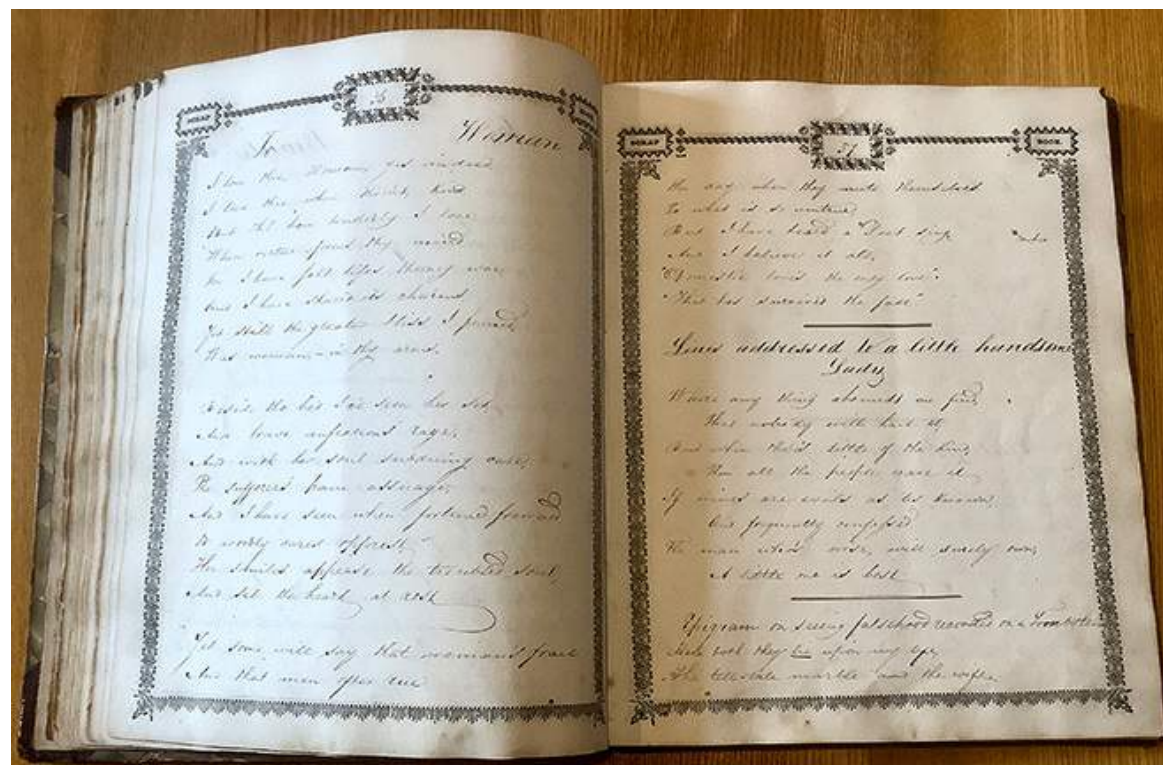 SCRAP
36
BOOK
To Woman
I love thee Woman yes indeed
I love thee when thou'rt kind
But oh! how tenderly I love
When virtue your mind
I have felt life's
And I have its charms
Yet still the greatest bliss I
Was woman - in thy arms.
Beside the bed I've seen her sit
And brave infectious rage,
And with her soul subduing care,
The sufferers pains assuage,
And I have seen when fortune frowned
By worldly cares opprest,
Her smiles appease the troubled soul,
And set the heart at rest
Yet some will say that woman's frail
And that men often rue
SCRAP
37
BOOK
The day when they unite themselves
To what is so untrue
But I have heard a Poet sing
And I believe it all,
"Domestic love's the only love"
"That has survived the fall"
Lines addressed to a little handsome
Lady
Where any thing abounds we find,
That nobody will have it
But when there's little of the kind,
Then all the people crave it
If wives are evils as tis known,
And frequently confessed
The man who's wise, will surely own,
A little one is best
Epigram on seeing falsehood recorded on a
Here both they lie upon my
The telltale marble and the wife.